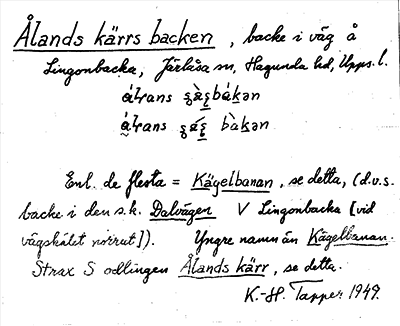 Ålands kärrs backen, backe i väg å
Lingonbacka, Järlåsa sn, Hagunda hd, Upps. l.
bákən
bàkən
Enl. de flesta = Kägelbanan, se detta, (d.v.s.
backe i den s.k. Dalvägen V Lingonbacka [vid
vägskälet norrut]). Yngre namn än Kägelbanan.
Strax S odlingen Ålands kärr, se detta.
K.-H. Tapper 1949.